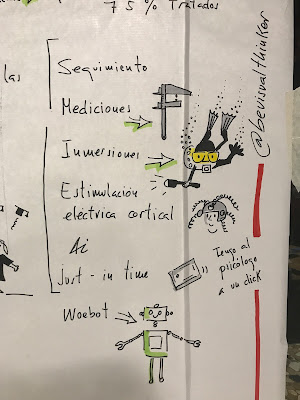 75% Tratados
las
Seguimiento
Mediciones
Inmersiones
Estimulación
eléctrica cortical
Ai
just-in time
Woebot
@bevisualthinker
Tengo al
psicólogo
a un click